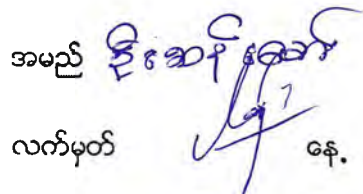 အမည် ဦးဆန်နော်
လက်မှတ် နေ့.